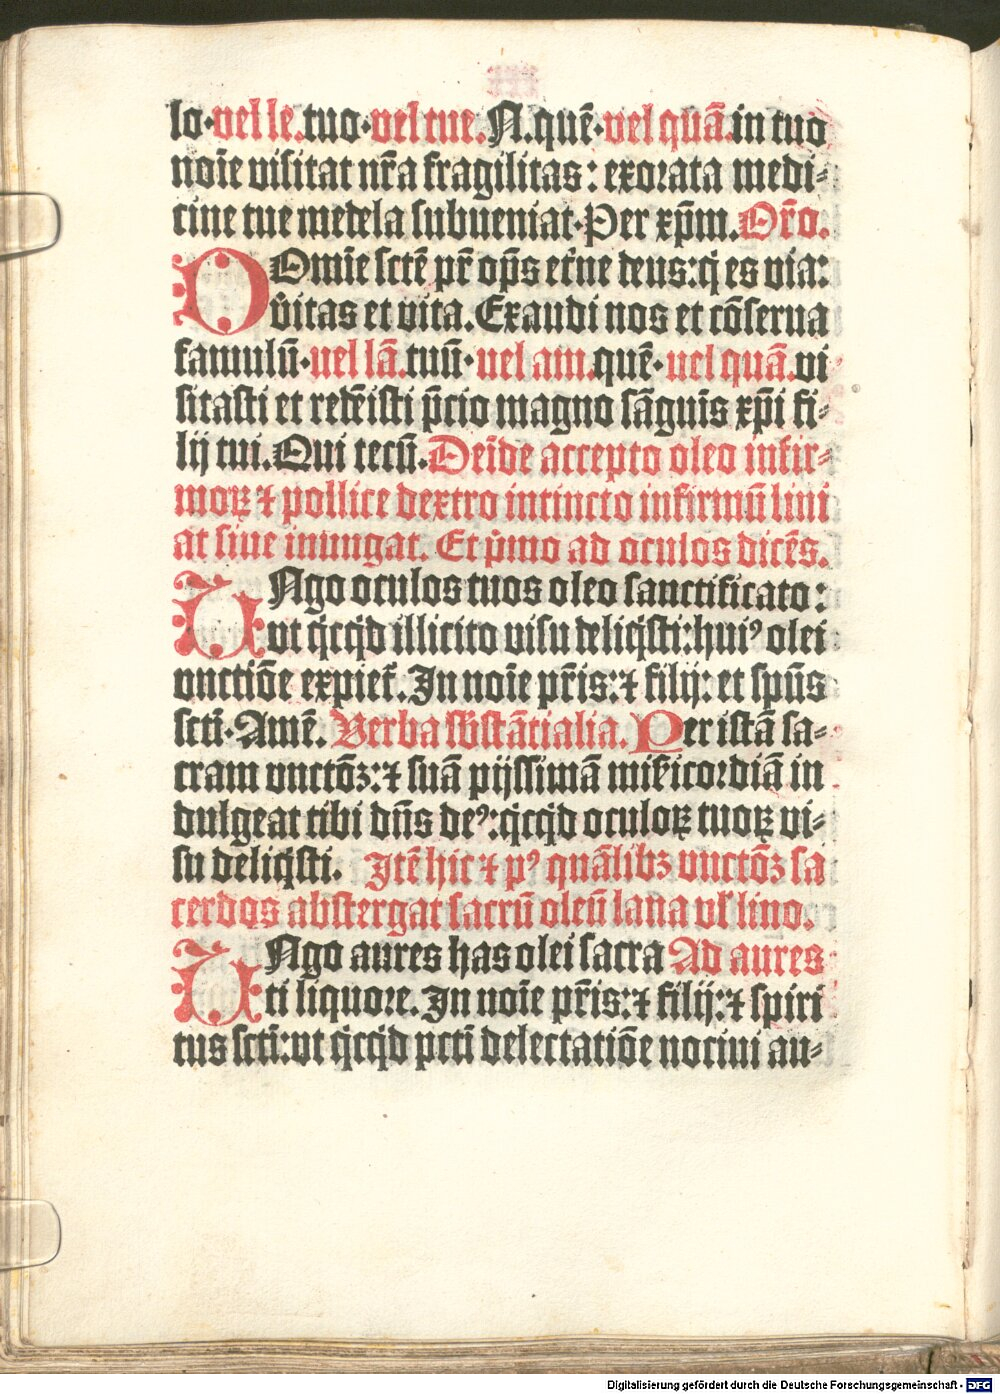 lo·vel le.tuo·vel tue.N.quē·vel quā.in tuo
noīe visitat nr̄a fragilitas: exorata medi⸗
cine tue medela subueniat·Per xp̄m.Or̄o.
DOmīe sctē pr̄ op̄s et̄ne deus:q̇ es via:
v̄itas et vita.Exaudi nos et cōserua
famulū·vel lā.tuū·vel am.quē·vel quā.vi
sitasti et redēisti p̄cio magno sāguīs xp̄i fi⸗
lij tui.Qui tecū.Deīde accepto oleo infir⸗
moꝝ ⁊ pollice dextro intincto infirmū lini
at siue inungat. Et p̄mo ad oculos dicēs.
VNgo oculos tuos oleo sanctificato:
vt q̇cq̇d illicito visu deliq̇sti:huiꝰ olei
vnctiōe expiet̄. In noīe pr̄is:⁊ filij: et spūs
scti·Amē. Verba sb̄stātialia. Per istā sa⸗
cram vnctōꝫ:⁊ suā pijssimā mīẜicordiā in
dulgeat tibi dn̄s deꝰ:q̇cq̇d oculoꝝ tuoꝝ vi⸗
su deliq̇sti. Itē hic ⁊ pꝰ quālibꝫ vnctōꝫ sa
cerdos abstergat sacrū oleū lana vl̄ lino.
VNgo aures has olei sacra Ad aures
ti liquore. In noīe pr̄is:⁊ filij:⁊ spiri
tus scti:vt q̇cq̇d pctī delectatiōe nociui au⸗
Digitalisierung gefördert durch die Deutsche Forschungsgemeinschaft - DFG